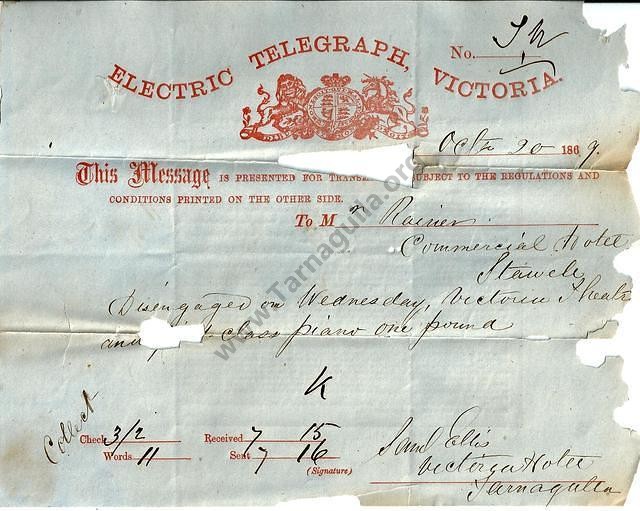 ELECTRIC TELEGRAPH, VICTORIA.
No.
Octr 20 1869.
This Message IS PRESENTED FOR SUBJECT TO THE REGULATIONS AND
CONDITIONS PRINTED ON THE OTHER SIDE.
To Mr Rainer
Commercial Hotel
Stawell
Disengaged on Wednesday, Victoria Theatre
and class piano one pound
K
Collect
Check 3/2 Received 7 15
Words 11 Sent 7 16
(Signature)
Saml Ellis
Victoria Hotel
Tarnagulla
www.Tarnagulla.org